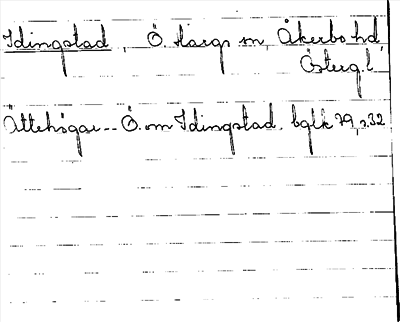 Idingstad, Ö. Hargs sn, Åkerbo hd,
Österg. l.
Ättehögar -- Ö. om Idingstad. bglk 79, s. 32